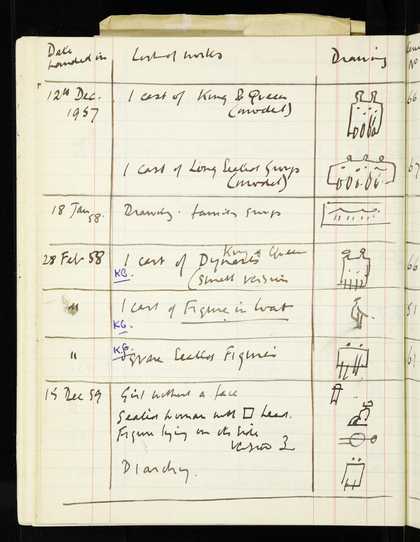 Date handed in
List of works
Drawing
No
12th Dec. 1957
1 cast of King & Queen
(model)
66
1 cast of Long Seated Group
(model)
67
18 Jan 58.
Drawing. family group
28 Feb 58
1 cast of Dynasts King & Queen
KB.
(small version
66
"
1 cast of Figure in Coat
KB.
51
"
KB.
Square Seated Figures
61
15 Dec 59
Girl without a face
Seated woman with □ head.
Figure lying on its side
version 2
Diarchy.